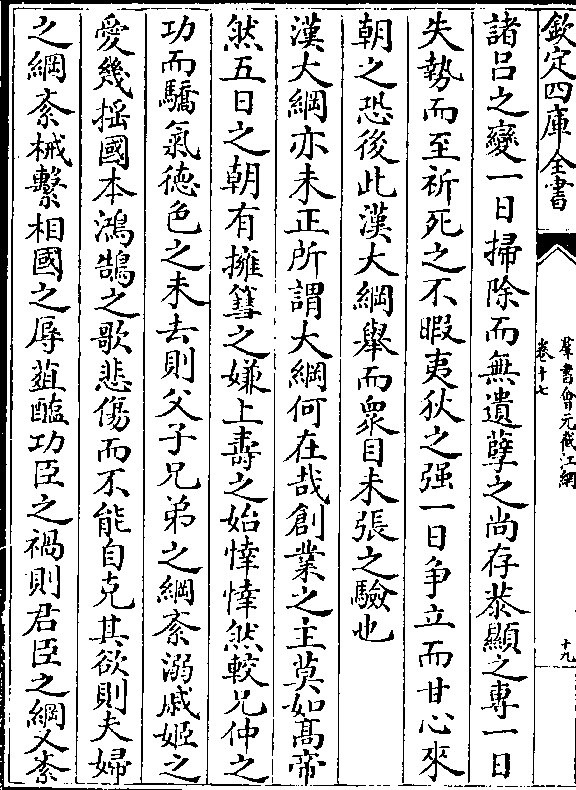 欽定四庫全書
羣書會元截江網
卷十七
十九
諸吕之變一日掃除而無遺孽之尚存恭顯之專一日
失勢而至祈死之不暇夷狄之强一日爭立而甘心來
朝之恐後此漢大綱舉而衆目未張之驗也
漢大綱亦未正所謂大綱何在哉創業之主莫如髙帝
然五日之朝有擁篲之嫌上壽之始悻悻然較兄仲之
功而驕氣德色之未去則父子兄弟之綱紊溺戚姬之
愛幾揺國本鴻鵠之歌悲傷而不能自克其欲則夫婦
之綱紊械繫相國之辱葅醢功臣之禍則君臣之綱又紊